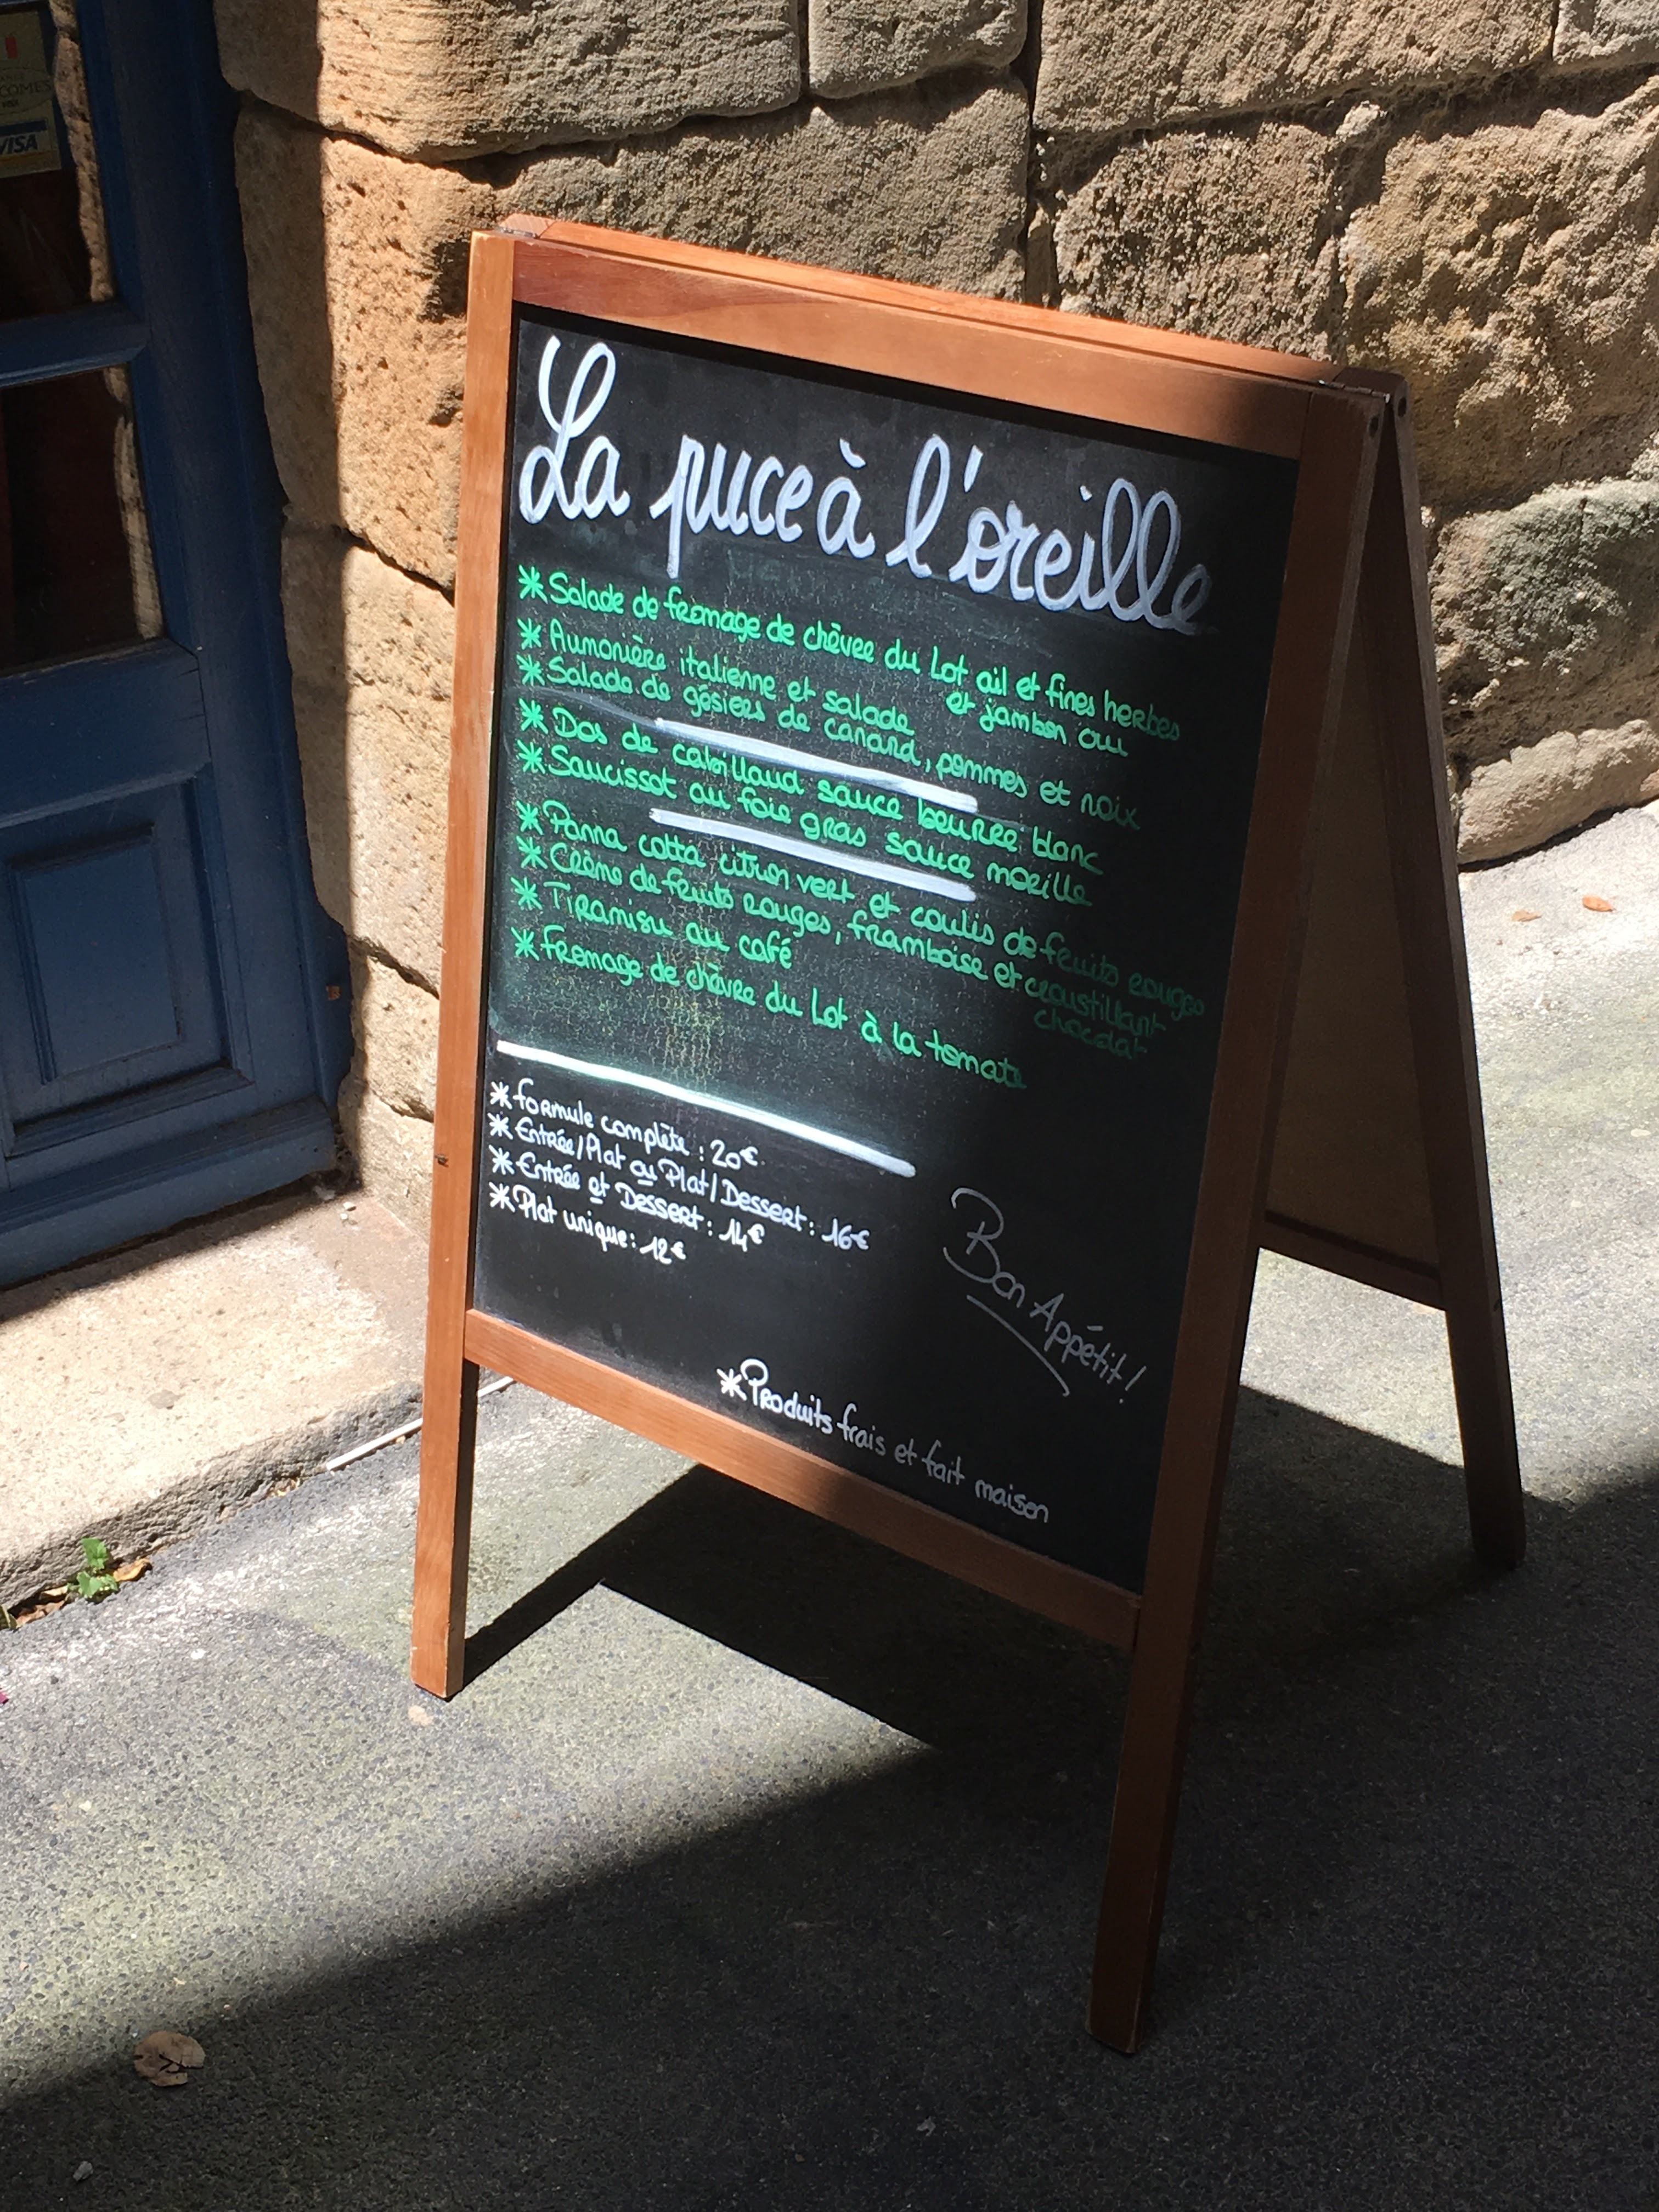 COMES
VISA
VISA
La puce à l'oreille
* Salade de fromage de chèvre du Lot ail et fines herbes
et jambon ou
* Aumonière italienne et salade
* Salade de gésiers de canard, pommes et noix
* Dos de cabillaud sauce beurre blanc
* Saucisson au foie gras sauce morille
* Panna cotta citron vert et coulis de fruits rouges
* Crème de fruits rouges, framboise et croustillant
chocolat
* Tiramisu au café
* Fromage de chèvre du Lot à la tomate
* formule complète : 20€
* Entrée/Plat ou Plat/Dessert : 16€
* Entrée et Dessert : 14€
* Plat unique : 12€
Bon Appétit !
* Produits frais et fait maison